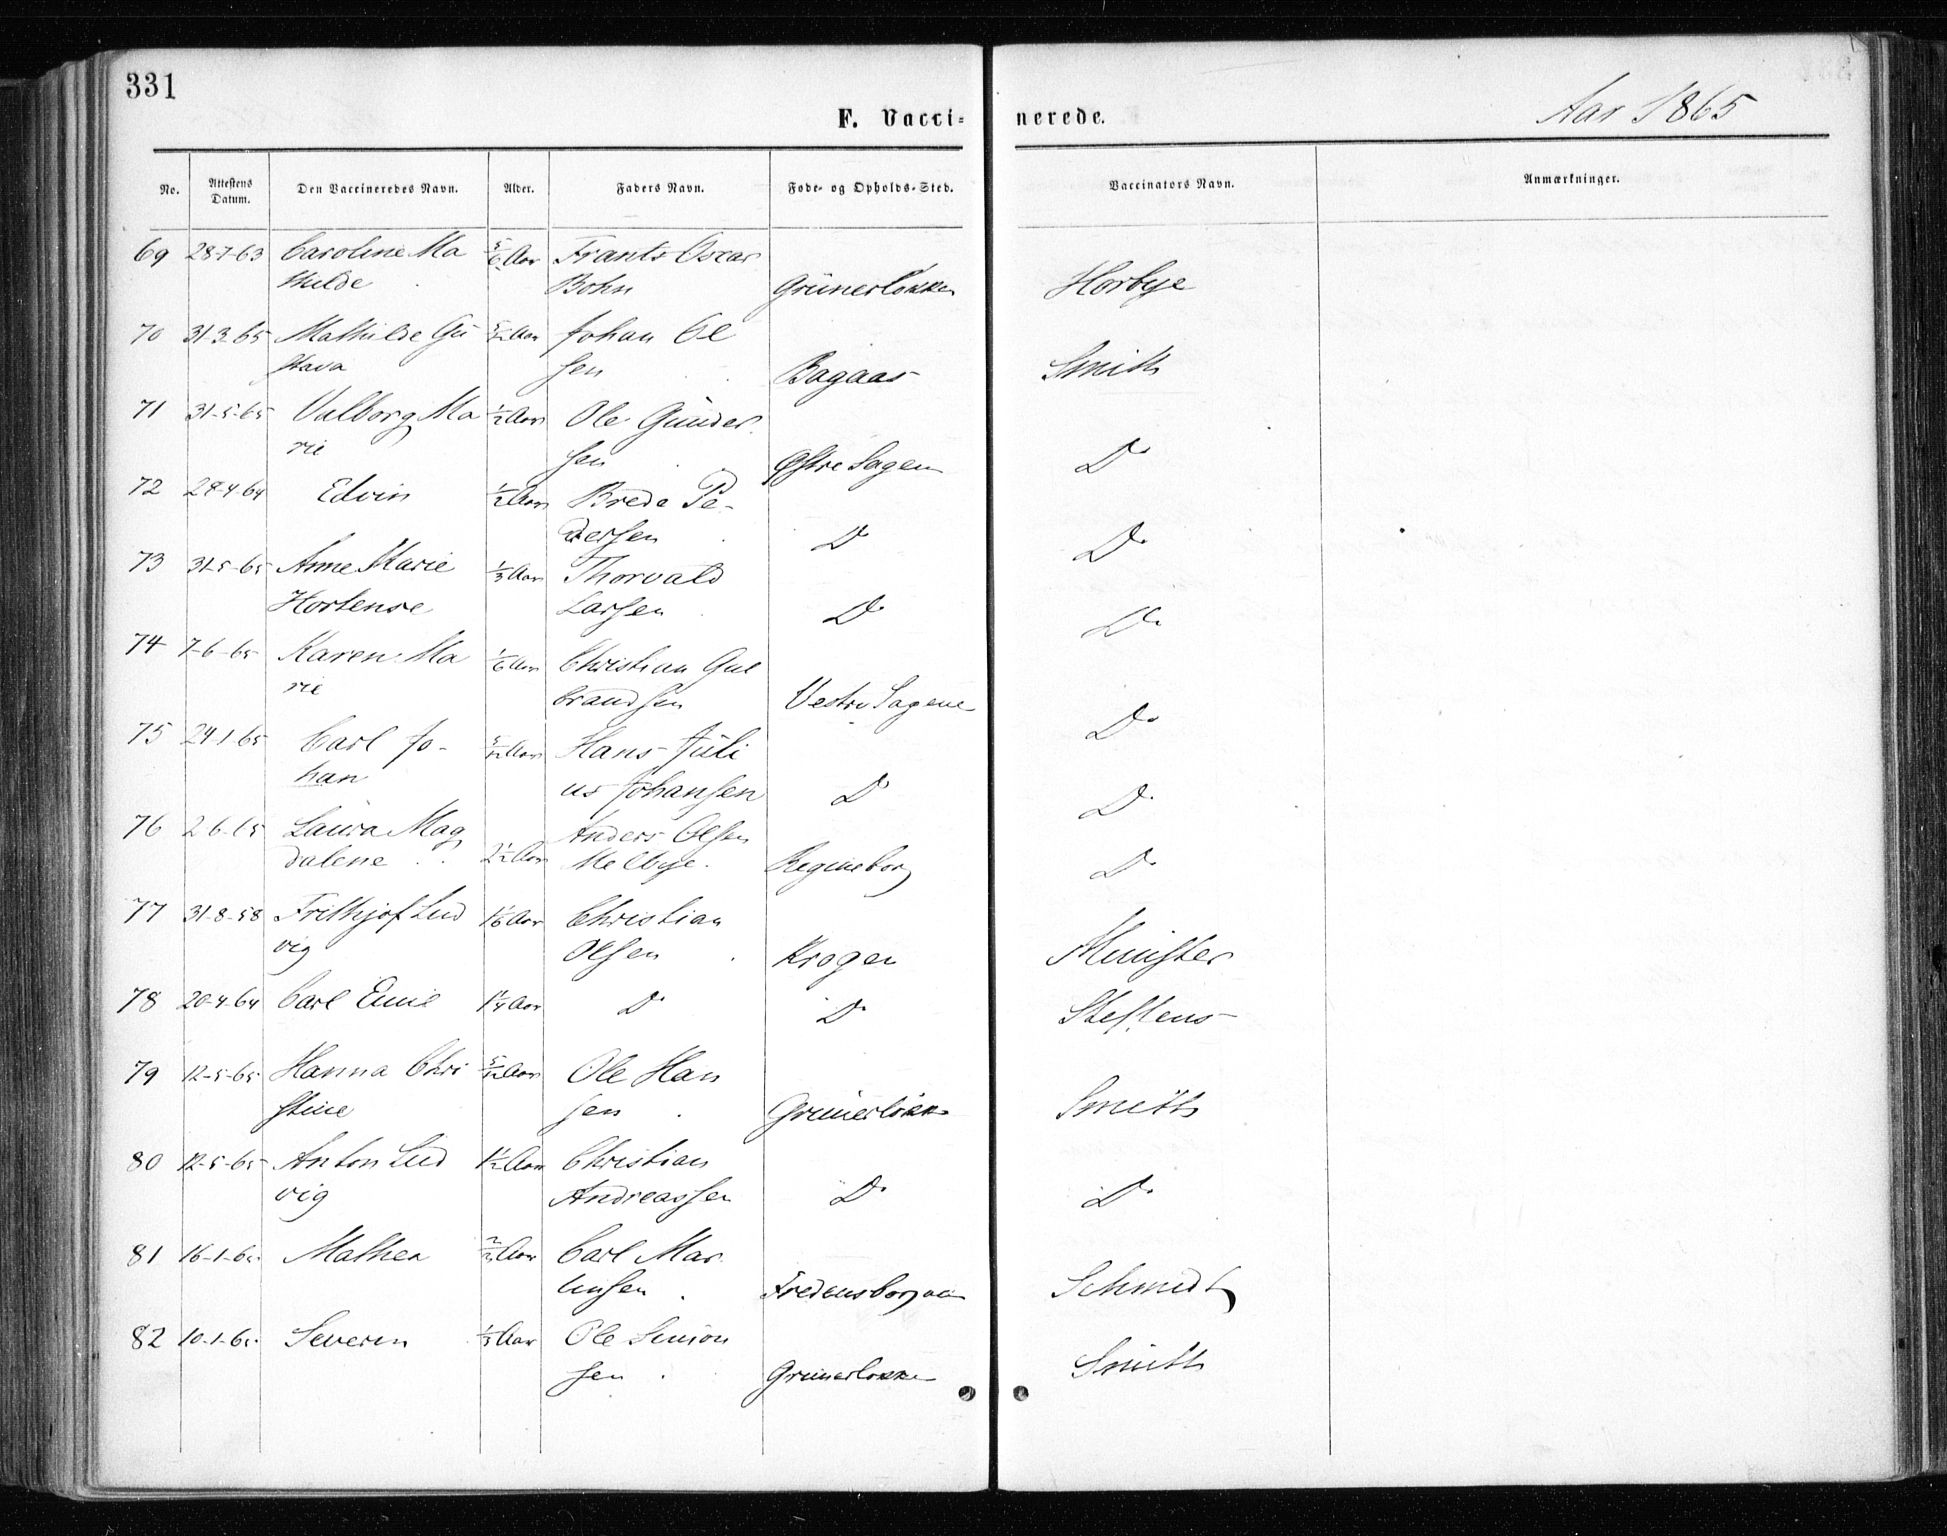 331
F. Vacci-nerede.
Aar 1865
No. Attestens Datum. Den Vaccineredes Navn. Alder. Faders Navn. Føde- og Opholds-Sted. Vaccinators Navn. Anmærkninger.
69 28-7-63 Caroline Ma 5/6 Aar Frants Oscar
thilde Bohn Grünerløkken Horbye
70 31-3-65 Mathilde Gu Aar Johan Ol
stava sen Bagaas Smith
71 31-5-65 Valborg Ma 1/2 Aar Ole Gunder
rie sen Østre Sagen D
72 28-4-64 Edvin 1/2 Aar Brede Pe-
dersen D D
73 31-5-65 Anne Marie 1/3 Aar Thorvald
Hortense Larsen D D
74 7-6-65 Karen Ma 1/6 Aar Christian Gul
rie brandsen Vestre Sagene D
75 24-1-65 Carl Jo- 5/12 Aar Hans Juli
han us Johansen D D
76 2-6-65 Laura Mag Anders Olsen
dalene 2 1/2 Aar Melbye Regineborg D
77 31-8-58 Frithjof Lud 1 1/6 Aar Christian
vig Olsen Krogen Munster
78 20-4-64 Carl Emil 1 1/4 Aar D D Steffens
79 12-5-65 Hanna Chri 5/12 Aar Ole Han
stine sen Grünerløkk Smith
80 12-5-65 Anton Lud 1 1/2 Aar Christian
vig Andreassen D D
81 16-1-65 Mathea Aar Carl Mar
Fredensborg Schmidt
82 10-1-65 Severin 1/3 Aar Ole Simon
sen Grünerløkken Smith